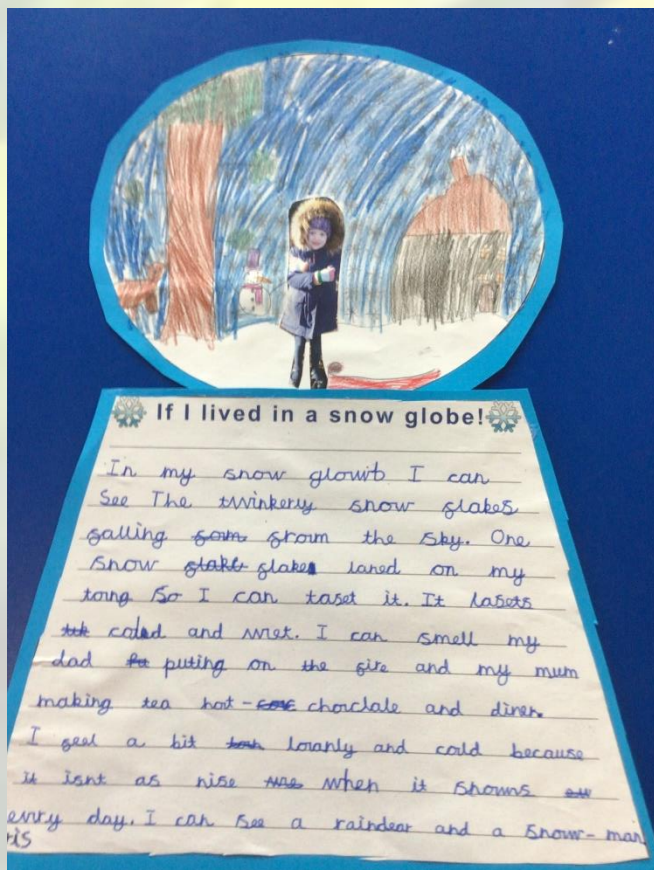 If I lived in a snow globe!
In my snow glowb I can
See The twinkerly snow flakes
falling from the sky. One
snow flake laned on my
toing So I can taset it. It tasets
coled and wet. I can smell my
dad puting on the fire and my mum
making tea hot - choclale and diner.
I feel a bit loranly and cold because
it isnt as nise when it snows
evry day. I can see a raindear and a snow-man